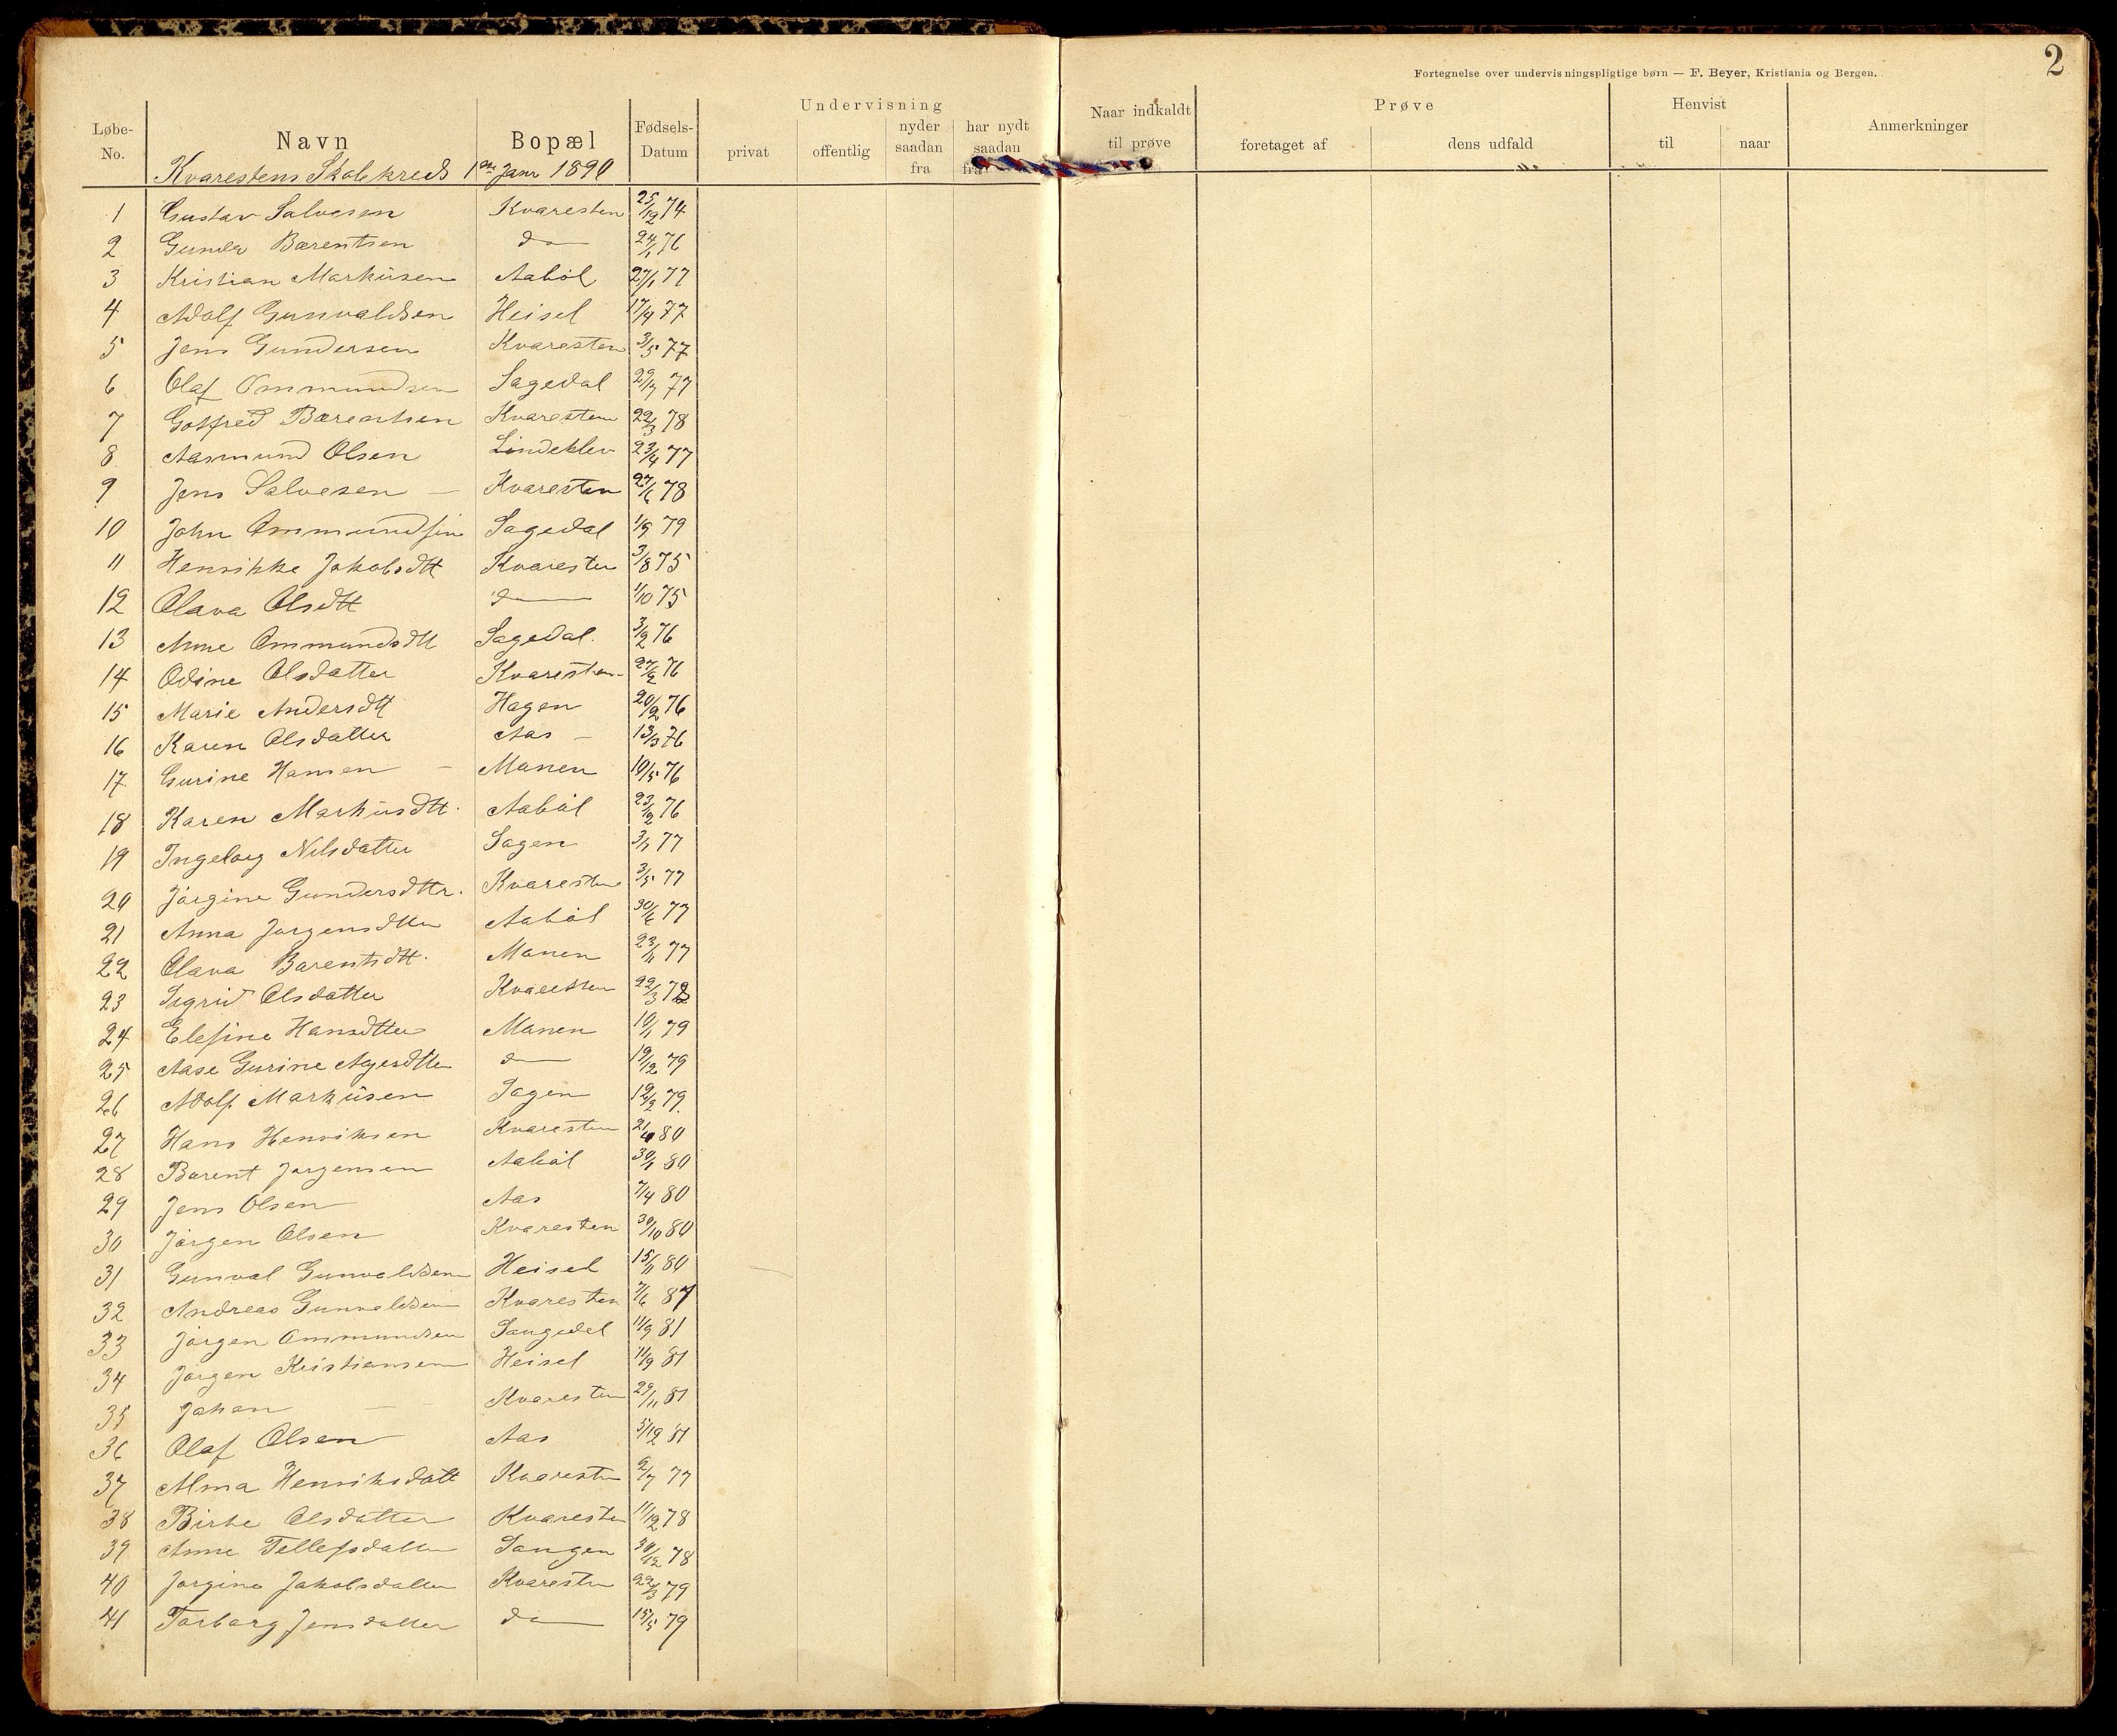 2
Fortegnelse over undervisningspligtige børn — F. Beyer, Kristiania og Bergen.
Løbe-No. Navn Bopæl Fødsels-Datum Undervisning privat offentlig nyder saadan fra har nydt saadan fra Naar indkaldt til prøve Prøve foretaget af dens udfald Henvist til naar Anmerkninger
Kvarestens Skolekreds 1ste Janr 1890
1 Gustav Salvesen Kvaresten 25/12 74
2 Gunder Bærentsen do 24/1 76
3 Kristian Markusen Aabøl 27/1 77
4 Adolf Gunvaldsen Heisel 17/4 77
5 Jens Gundersen Kvaresten 3/5 77
6 Olaf Ommundsen Sagedal 29/7 77
7 Gotfred Bærentsen Kvaresten 22/3 78
8 Aasmund Olsen Lindeklev 23/4 77
9 Jens Salvesen — Kvaresten 27/6 78
10 John Ommundsen Sagedal 1/9 79
11 Henrikke Jakobsdtt Kvaresten 3/8 75
12 Olava Olsdtt do 1/10 75
13 Anne Ommundsdtt Sagedal. 3/2 76
14 Odine Olsdatter Kvaresten 27/2 76
15 Marie Andersdtt Hagen 20/2 76
16 Karen Olsdatter Aas — 13/3 76
17 Gurine Hansen — Manen 10/5 76
18 Karen Markusdtt. Aabøl 23/12 76
19 Ingeborg Nilsdatter Sagen 3/1 77
20 Jørgine Gundersdttr. Kvaresten 3/5 77
21 Anna Jørgensdtter Aabøl 30/6 77
22 Olava Barentsdtt. Manen 23/11 77
23 Sigrid Olsdatter Kvaresten 22/3 78
24 Elefine Hansdtter Manen 10/1 79
25 Aase Gurine Agesdtter do 19/12 79
26 Adolf Markusen Sagen 12/2 79.
27 Hans Henriksen Kvaresten 80
28 Barent Jørgensen Aabøl 30/1 80
29 Jens Olsen Aas 7/4 80
30 Jørgen Olsen Kvaresten 30/10 80
31 Gunval Gunvaldsen Heisel 15/11 80
32 Andreas Gunvaldsen Kvaresten 7/6 81
33 Jørgen Ommundsen Saugedal 11/9 81
34 Jørgen Kristiansen Heisel 11/9 81
35 Johan — Kvaresten 29/11 81
36 Olaf Olsen Aas 5/12 81
37 Alma Henriksdatt Kvaresten 2/7 77
38 Birte Olsdatter Kvaresten 11/12 78
39 Anne Tellefsdatter Saugen 30/12 78
40 Jørgine Jakobsdatter Kvaresten 22/3 79
41 Torborg Jensdatter do 15/5 79